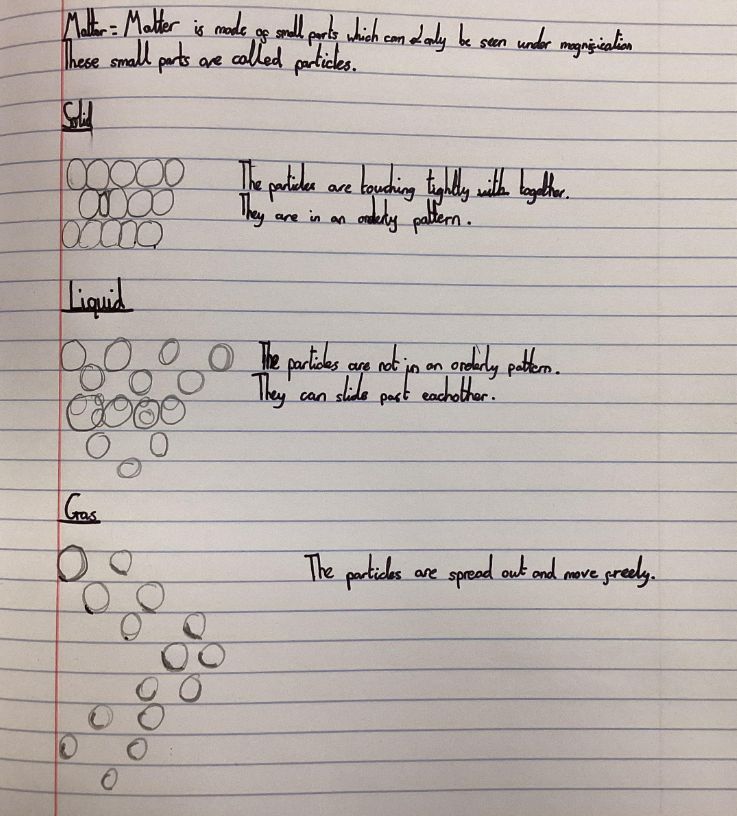 Matter = Matter is made of small parts which can only be seen under magnification
These small parts are called particles.
Solid
The particles are touching tightly with together.
They are in an orderly pattern.
Liquid
The particles are not in an orderly pattern.
They can slide past eachother.
Gas
The particles are spread out and move freely.